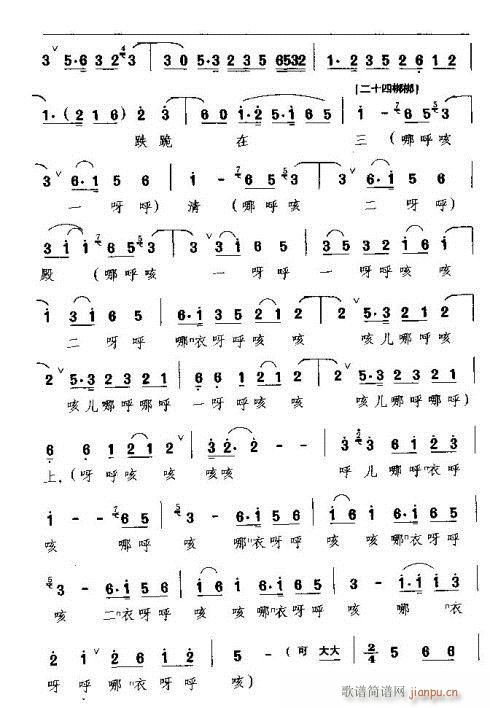 3 ˅ 5·6 3 2 3 3 0 5·3 2 3 5 6532 1· 2 3 5 2 6 1
[二十四梆梆]
1·( 2 1 6 ) 2 3 6 0 1·2 5·1 6 5 1 - 6 5 3
跌跪 在 三 (哪呼咳
3 ˅ 6·1 5 6 1 - 6 5 3 3 ˅ 6·1 5 6
一呀呼) 清 (哪呼咳 二呀呼)
3 1 1 6 5 3 3 ˅ 6·1 5 6 3 5 3 5 1 6 1
殿 (哪呼咳 一呀呼 一呀呼咳咳
1 3 1 6 5 6·1 6 5 3 2 2 ˅ 5·3 2 2 1
二呀呼 哪衣呀呼咳咳 咳儿哪呼咳
2 ˅ 5·3 2 3 2 1 6 6 1 2 1 2 2 ˅ 5·3 2 3 2 1
咳儿哪呼哪呼 一呀呼咳咳 咳儿哪呼哪呼)
6 6 1 2 1 2 ˅ 3 2·2 - - 3 3 2 1 6 1
上,(呀呼咳咳 咳咳 呼儿哪呼衣呼
1 - - 6 5 3 - 6·1 6 5 1 6 1 6·1 6 5
咳 哪呼 咳 哪衣呀呼 咳咳哪衣呀呼
3 - 6·1 6 5 1 6 1 6·1 6 5 3 - 1·1 1 3
咳 二衣呀呼 咳咳哪衣呀呼 咳 哪衣
2 1 ˅ 2 6 1 2 5 - (可 大大 2/4 5 6 6
呀呼哪衣呀呼 咳)
歌谱简谱网
jianpu.cn